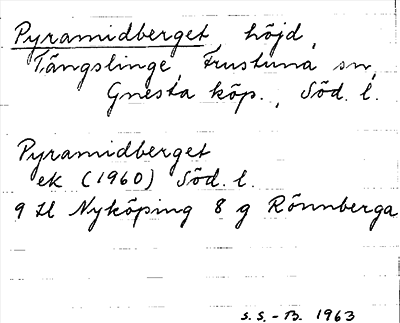 Pyramidberget höjd,
Tängslinge, Frustuna sn,
Gnesta köp., Söd. l.
Pyramidberget
ek (1960) Söd. l.
9 H Nyköping 8 g Rönnberga
S.S.-B. 1963